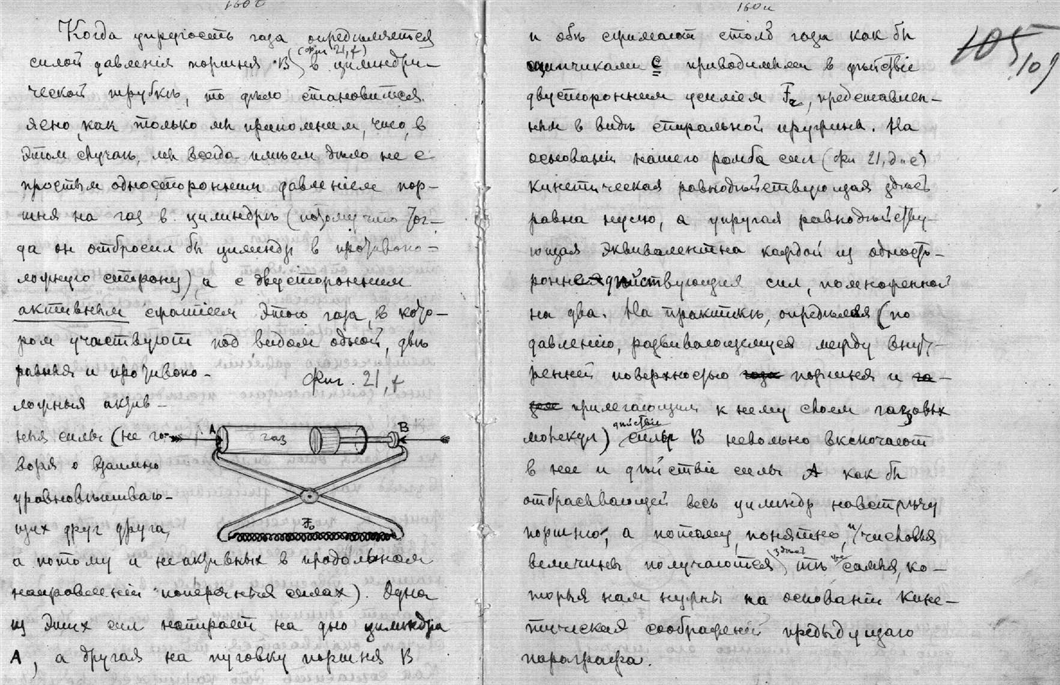 Когда упругость газа определяется
(фиг. 21, f)
силой давленія поршня B в цилиндри-
ческой трубкѣ, то дѣло становится
ясно, как только мы припомним, что, в
этом случаѣ, мы всегда имѣем дѣло не с
простым односторонним давленіем пор-
шня на газ в цилиндрѣ (потому что тог-
да он отбросил бы цилиндр в противопо-
ложную сторону), а с двусторонним
активным сжатіем этого газа, в кото-
ром участвуют под видом одной, двѣ
равныя и противопо-
ложныя актив-
ныя силы (не го-
воря о взаимно
уравновѣшиваю-
щих друг друга,
а потому и неактивных в продольном
направленіи поперечных силах). Одна
из этих сил напирает на дно цилиндра
A, а другая на пуговку поршня B
Фиг. 21, f
A газ B
F₂
и обѣ сжимают столб газа как бы
щипчиками C приводимыми в дѣйствіе
двусторонним усиліем F₂, представлен-
ным в видѣ спиральной пружины. На
основаніи нашего ромба сил (фиг 21, d и e)
кинетическая равнодѣйствующая здѣсь
равна нулю, а упругая равнодѣйству-
ющая эквивалентна каждой из односто-
ронне дѣйствующих сил, помноженной
на два. На практикѣ, опредѣляя (по
давленію, развивающемуся между внут-
ренней поверхностью поршня и
прилегающим к нему слоем газовых
молекул) дѣйствіе силы B невольно включают
в нее и дѣйствіе силы A как бы
отбрасывающей весь цилиндр навстрѣчу
поршню, а потому, понятно, и числовыя
величины получаются здѣсь тѣ же самыя, ко-
торыя нам нужны на основаніи кине-
тических соображеній предыдущаго
параграфа.
105
109